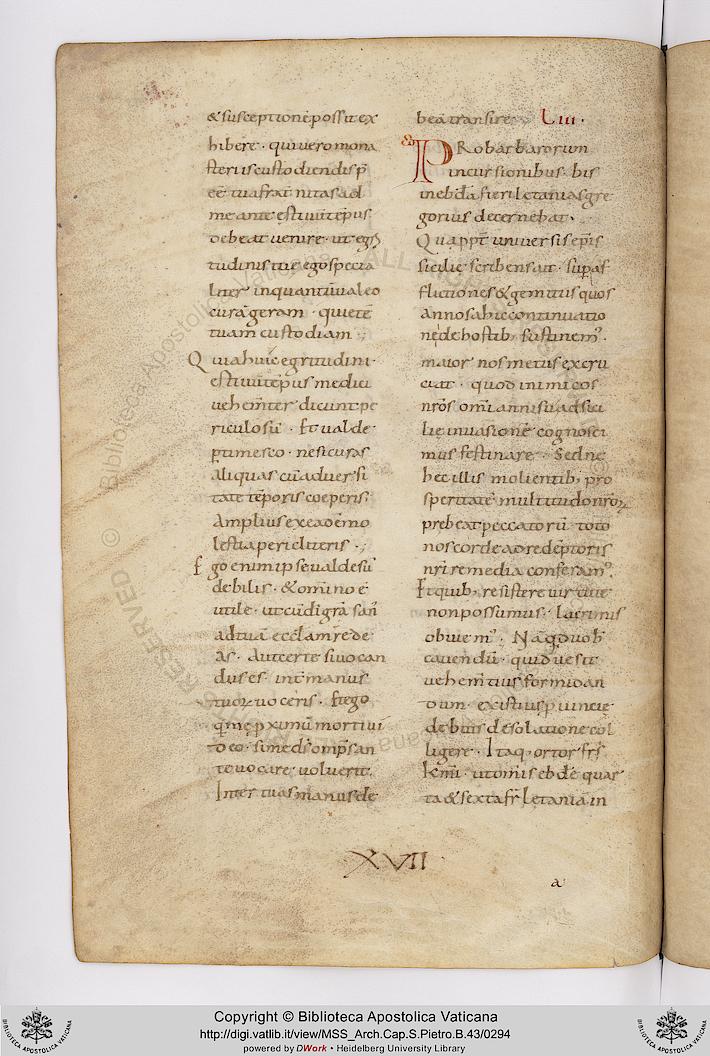 & susceptionē possit ex
hibere · qui vero mona
sterii s custodiendis p̄
eē tua frat̄nitas ad
me ante estivū tēpus
debeat venire · ut egri
tudinis tue ego specia
liter inquantū valeo
curā geram · quietē
tuam custodiam ·,
Quia huic egritudini
estivū tēpus medici
vehem̄ter dicunt pe
riculosū · Et valde
p̱timesco · ne si curas
aliquas cū adversi
tate tēporis coeperis;
amplius ex ea dēmo
lestia pericliteris ·,
Ego enim ipse valde sū
debilis · & omnino ē
utile · ut cū di gr̄a san̄
ad tuā eccl̄am rede
as · aut certe si vocan
dus es int̄ manus
tuoꝝ voceris · Et ego
q̄ me p̱ximū morti vi
deo · si me d̄s omp̄s an
te vocare voluerit ·
Inter tuas manus de
beā transire · Liii ·
PRo barbarorum
incursionibus · bis
in ebd̄a fieri letanias gre
gorius decernebat ·
Qua ppt̄ universis ep̄is
sicilie scribens ait · sup̱ af
flictiones & gemitus quos
annos ab hic continuatio
nēde hostib; sustinem᾽ ·
maior nos metus excru
ciat · quod inimicos
nr̄os omī annisu ad sici
lie invasionē cognosci
mus festinare · Sed ne
hec illis molientib; pro
speritatē multitudo nr̄oꝝ
prebeat peccatorū toto
nos corde ad redēptoris
nr̄i remedia conferam᾽ ·
Et quib; resistere virtute
non possumus · lacrimis
obviem᾽ · Nāq; d vob̄
cavendū · quid ve sit
vehem̄tius formidan
dum · existius p̱vincie
debitis desolatione col
ligere · Itaq; ortor fr̄s
k̄mi · ut om̄is ebd̄e quar
ta & sexta fr̄ letaniā in
XVII
a
Copyright © Biblioteca Apostolica Vaticana
http://digi.vatlib.it/view/MSS_Arch.Cap.S.Pietro.B.43/0294
powered by DWork • Heidelberg University Library